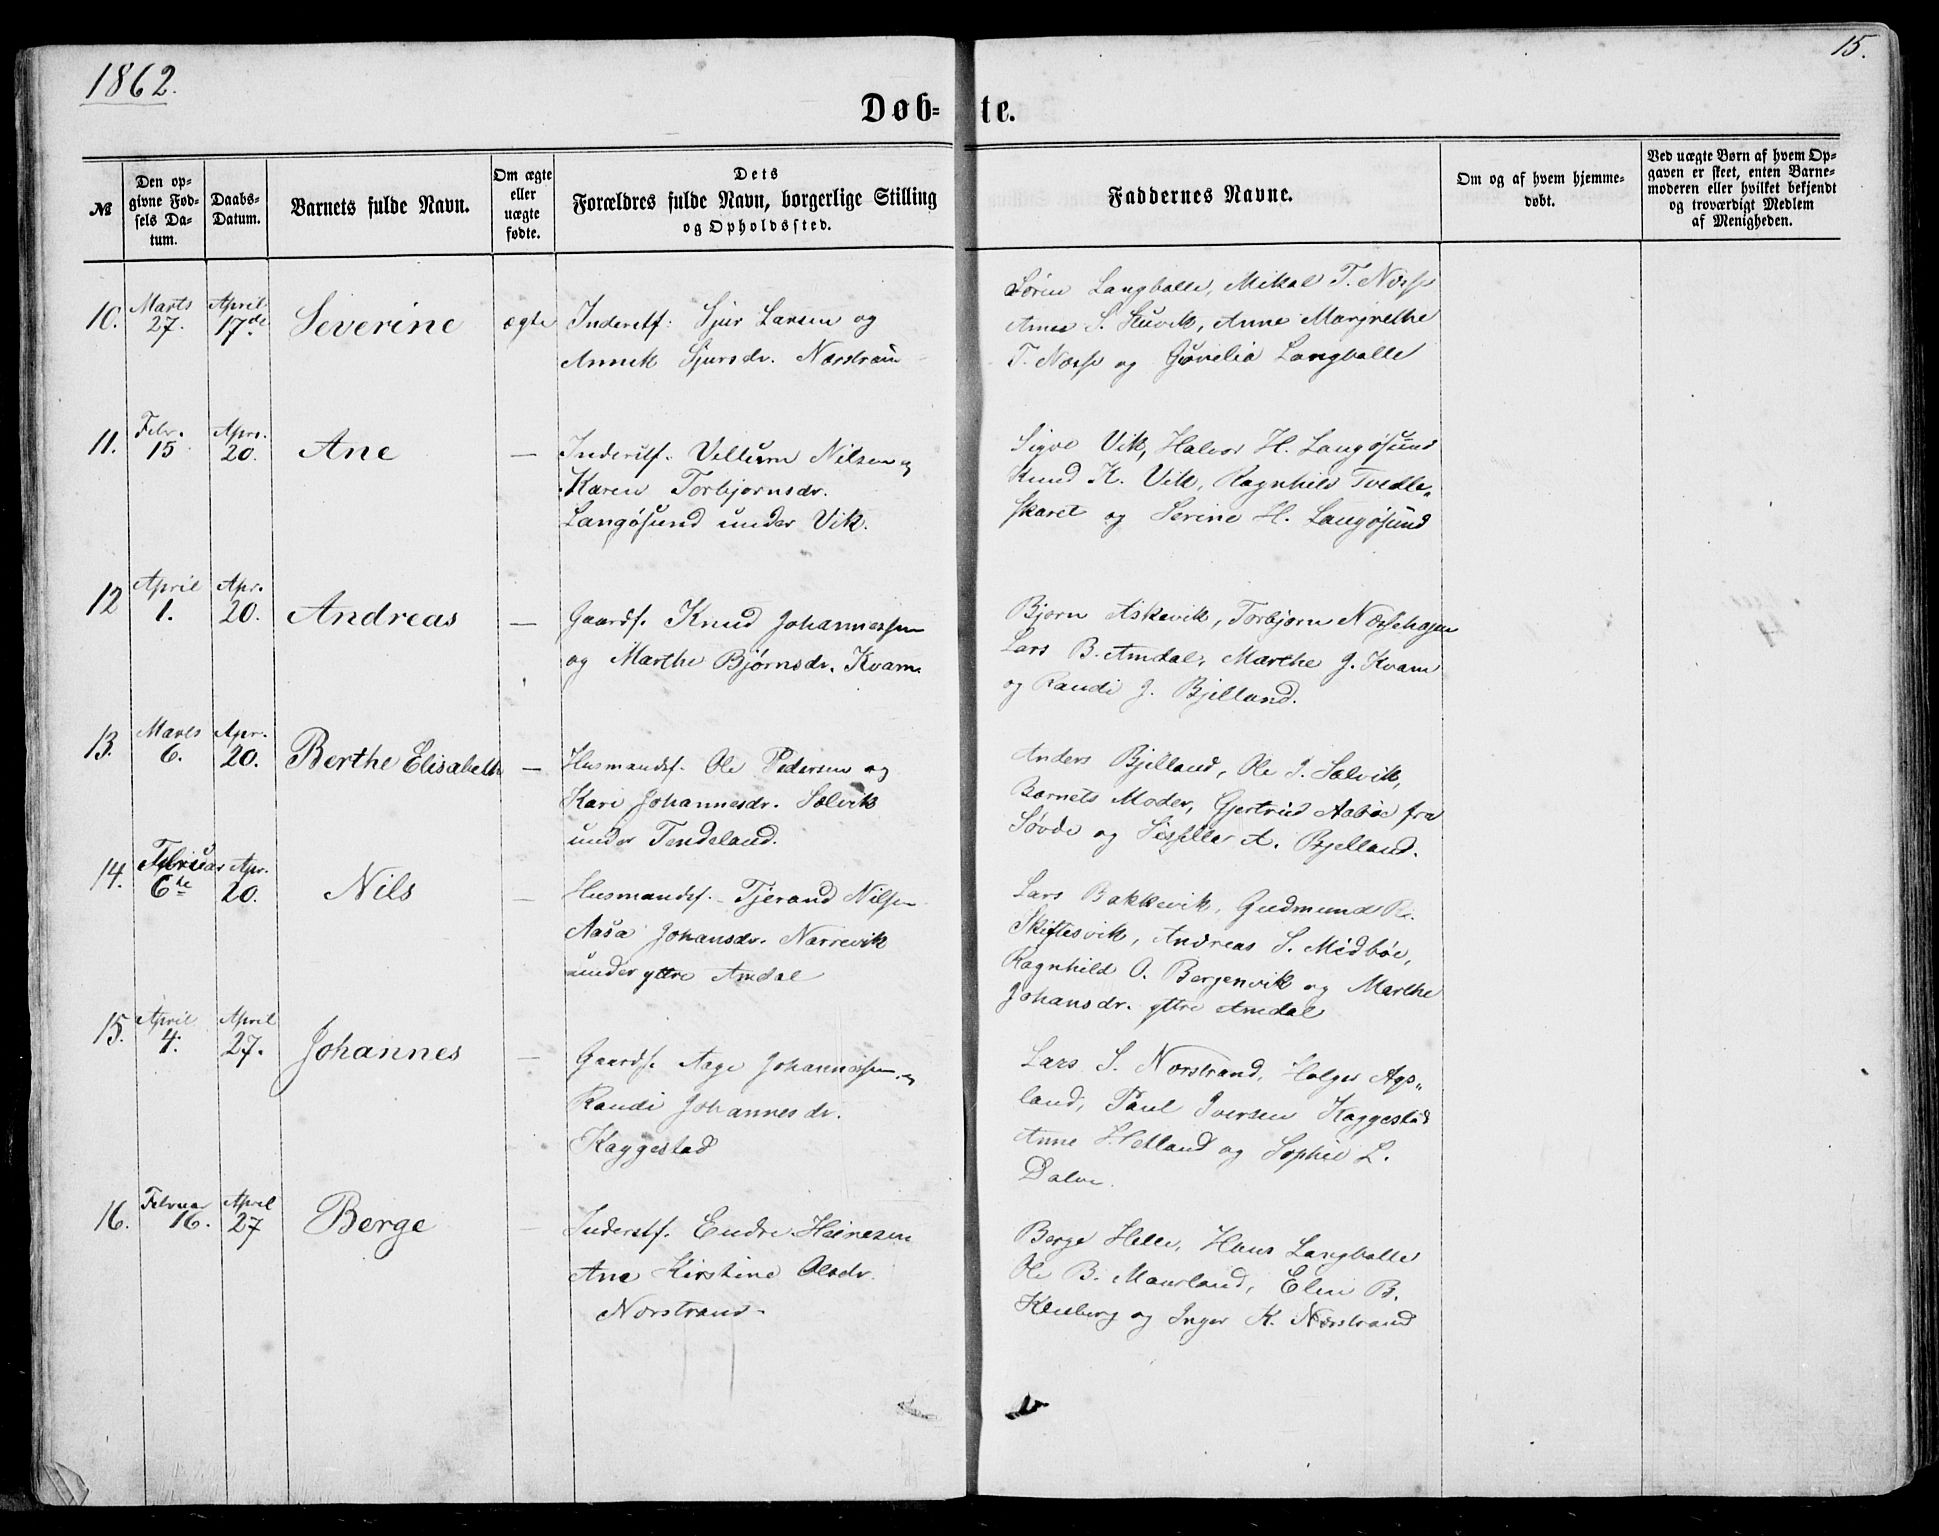 1862.
15.
Døb-
te.
№
Den op-
givne Fød-
sels Da-
tum.
Daabs-
Datum.
Barnets fulde Navn.
Om ægte
eller
uægte
fødte.
Dets
Forældres fulde Navn, borgerlige Stilling
og Opholdssted.
Faddernes Navne.
Om og af hvem hjemme-
døbt.
Ved uægte Børn af hvem Op-
gaven er skeet, enten Barne-
moderen eller hvilket bekjendt
og troværdigt Medlem
af Menigheden.
10.
Marts
27.
April
17de
Severine
ægte
Inderstf. Sjur Larsen og
Sjursdr. Nærstrand
Søren Langballe, Mikal T. Næss
S. Stuvik, Anne Margrethe
T. Næss og Langballe
11.
Febr.
15
Apr.
20.
Ane
—
Inderstf. Nilsen og
Karen Torbjørnsdr.
Langøsund under Vik.
Sigve Vik, Halvor H. Langøsund
Knud K. Vik, Ragnhild Tvedte-
skaret og Serine H. Langøsund
12
April
1.
Apr.
20.
Andreas
—
Gaardf. Knud Johannessen
og Marthe Bjørnsdr. Kvam
Bjørn Askevik, Torbjørn Næssehagen
Lars B. Amdal, Marthe J. Kvam
og Randi J. Bjelland.
13.
Marts
6.
Apr.
20.
Berthe Elisabeth
—
Husmandsf. Ole Pedersen og
Kari Johannesdr. Sølvik
under Tendeland.
Anders Bjelland, Ole J. Sølvik,
Barnets Moder, Gjertrud Aabøe fra
Søvde og A. Bjelland.
14.
Februar
6te
Apr.
20.
Nils
—
Husmandsf. Tjerand Nilsen
Aasa Johansdr. Narrevik
under yttre Amdal
Lars Bakkevik, Gudmund R.
Skiftesvik, Andreas S. Midbøe,
Ragnhild O. Bergenvik og Marthe
Johansdr. yttre Amdal
15.
April
4.
April
27.
Johannes
—
Gaardf. Aage Johannessen og
Randi Johannesdr.
Kaggestad
Lars S. Nørstrand, Holger Aps-
land, Paul Iversen Kaggestad
Anne Hetland og Sophie L.
Dalve.
16.
Februar
16.
April
27
Berge
—
Inderstf. Endre Heinesen
Ane Kirstine Olsdr.
Nørstrand
Berge Helle, Hans Langballe
Ole B. Maurland, Elen B.
Kleiberg og Inger K. Nærstrand